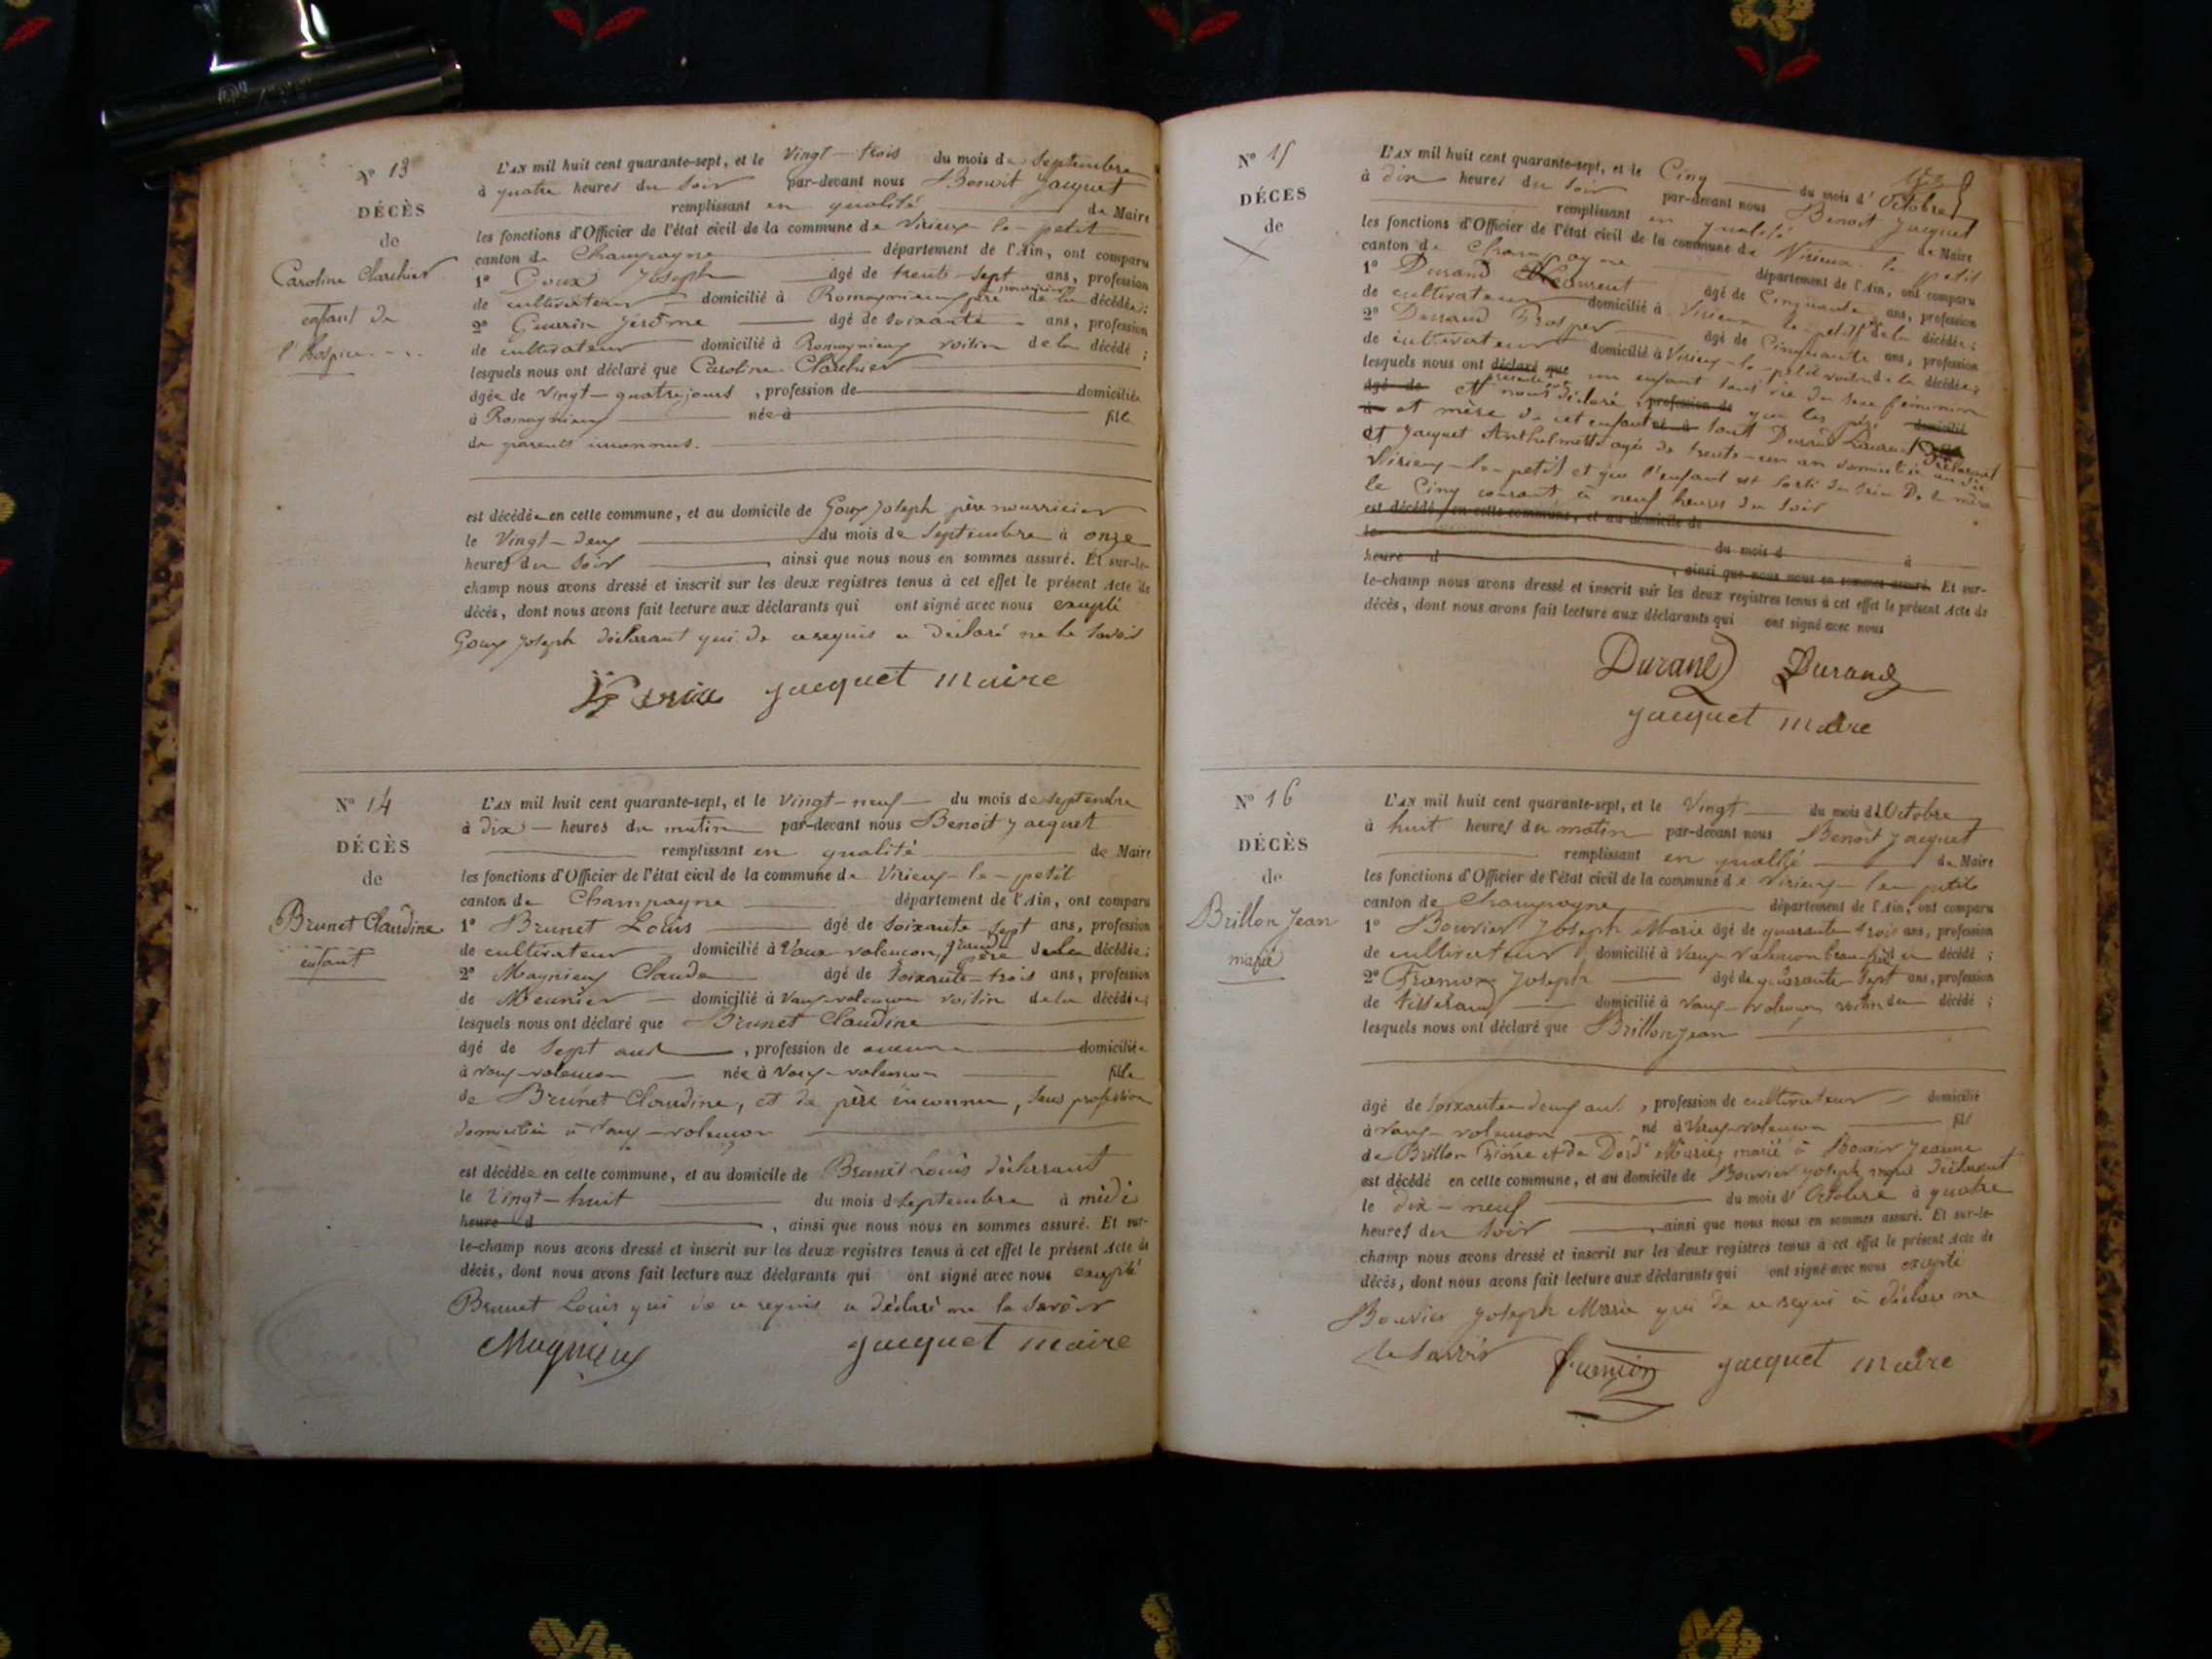 N° 13
DÉCÈS
de
Caroline
enfant de
l'hospice
L'AN mil huit cent quarante-sept, et le Vingt-trois du mois de Septembre
à quatre heures du soir par-devant nous Benoit Jacquet
remplissant en qualité de Maire
les fonctions d'Officier de l'état civil de la commune de Virieux-le-petit
canton de Champagne département de l'Ain, ont comparu
1° Goux Joseph âgé de trente-sept ans, profession
de cultivateur domicilié à père nourricier de la décédée;
2° Guerin Jérôme âgé de soixante ans, profession
de cultivateur domicilié à voisin de la décédé;
lesquels nous ont déclaré que Caroline
âgée de vingt-quatre jours, profession de domiciliée
à née à fille
de parents inconnus.
est décédée en cette commune, et au domicile de Goux Joseph père nourricier
le Vingt-deux du mois de Septembre à onze
heures du soir, ainsi que nous nous en sommes assuré. Et sur-le-
champ nous avons dressé et inscrit sur les deux registres tenus à cet effet le présent Acte de
décès, dont nous avons fait lecture aux déclarants qui ont signé avec nous excepté
Goux Joseph déclarant qui de ce requis a déclaré ne le savoir
Jacquet maire
N° 14
DÉCÈS
de
Brunet Claudine
enfant
L'AN mil huit cent quarante-sept, et le Vingt-neuf du mois de Septembre
à dix heures du matin par-devant nous Benoit Jacquet
remplissant en qualité de Maire
les fonctions d'Officier de l'état civil de la commune de Virieux-le-petit
canton de Champagne département de l'Ain, ont comparu
1° Brunet Louis âgé de soixante-sept ans, profession
de cultivateur domicilié à Vaux-volençon grand père de la décédée;
2° Magnieux Claude âgé de soixante-trois ans, profession
de Meunier domicilié à Vaux-volençon voisin de la décédée;
lesquels nous ont déclaré que Brunet Claudine
âgé de Sept ans, profession de aucune domiciliée
à vaux-volençon née à Vaux-volençon fille
de Brunet Claudine, et de père inconnu, sans profession
domiciliée à Vaux-volençon
est décédée en cette commune, et au domicile de Brunet Louis déclarant
le Vingt-huit du mois de Septembre à midi
heure d, ainsi que nous nous en sommes assuré. Et sur-
le-champ nous avons dressé et inscrit sur les deux registres tenus à cet effet le présent Acte de
décès, dont nous avons fait lecture aux déclarants qui ont signé avec nous excepté
Brunet Louis qui de ce requis a déclaré ne le savoir
Magnieux Jacquet maire
N° 15
DÉCÈS
de
L'AN mil huit cent quarante-sept, et le Cinq du mois d'Octobre
à dix heures du soir par-devant nous Benoit Jacquet
remplissant en qualité de Maire
les fonctions d'Officier de l'état civil de la commune de Virieux le petit
canton de Champagne département de l'Ain, ont comparu
1° Durand Laurent âgé de Cinquante ans, profession
de cultivateur domicilié à Virieux le petit de la décédée;
2° Durand Prosper âgé de Cinquante ans, profession
de cultivateur domicilié à Virieux-le-petit voisin de la décédée;
lesquels nous ont déclaré que présenté un enfant sans vie du sexe féminin
âgé de et nous déclaré, profession de que les père domicilié
à et mère de cet enfant né à sont Durand Laurent déclarant
et Jacquet Anthelmette agée de trente-un an domiciliée audit
Virieux-le-petit et que l'enfant est sorti du sein De la mère
le Cinq courant à neuf heures du soir
est décédé en cette commune, et au domicile de
le du mois d à
heure d, ainsi que nous nous en sommes assuré. Et sur-
le-champ nous avons dressé et inscrit sur les deux registres tenus à cet effet le présent Acte de
décès, dont nous avons fait lecture aux déclarants qui ont signé avec nous
Durand Durand
Jacquet maire
N° 16
DÉCÈS
de
Brillon Jean
marié
L'AN mil huit cent quarante-sept, et le Vingt du mois d'Octobre
à huit heures du matin par-devant nous Benoit Jacquet
remplissant en qualité de Maire
les fonctions d'Officier de l'état civil de la commune de Virieux-le-petit
canton de Champagne département de l'Ain, ont comparu
1° Bouvier Joseph Marie âgé de quarante trois ans, profession
de cultivateur domicilié à Vaux-volençon du décédé;
2° Joseph âgé de quarante-sept ans, profession
de tisserand domicilié à vaux-volençon voisin du décédé;
lesquels nous ont déclaré que Brillon Jean
âgé de soixante deux ans, profession de cultivateur domicilié
à vaux-volençon né à Vaux-volençon fils
de Brillon Pierre et de Marie, marié à Bouvier Jeanne
est décédé en cette commune, et au domicile de Bouvier Joseph marie déclarant
le dix-neuf du mois d'Octobre à quatre
heures du soir, ainsi que nous nous en sommes assuré. Et sur-le-
champ nous avons dressé et inscrit sur les deux registres tenus à cet effet le présent Acte de
décès, dont nous avons fait lecture aux déclarants qui ont signé avec nous excepté
Bouvier Joseph Marie qui de ce requi a déclaré ne
le savoir Jacquet maire